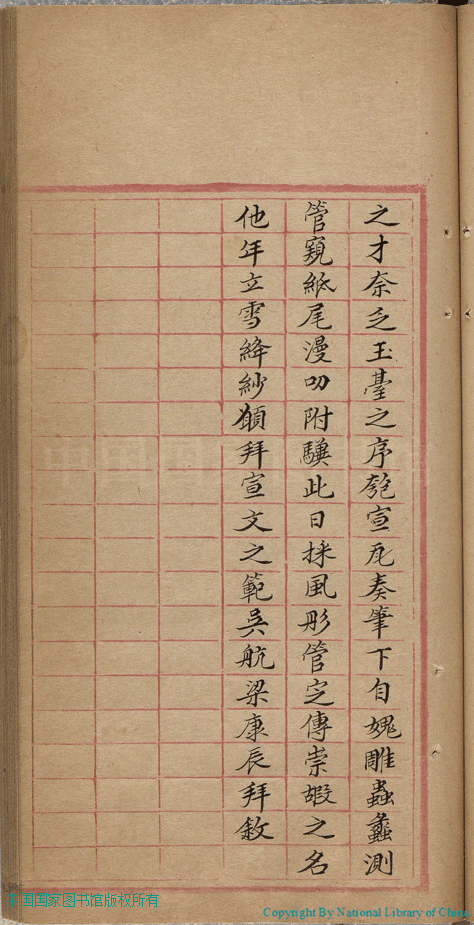 之才奈乏玉臺之序匏宣瓦奏筆下自媿雕蟲蠡測
管窺紙尾漫叨附驥此日採風彤管定傳崇嘏之名
他年立雪絳紗願拜宣文之範吳航梁康辰拜敘
中国国家图书馆版权所有
Copyright By National Library of China